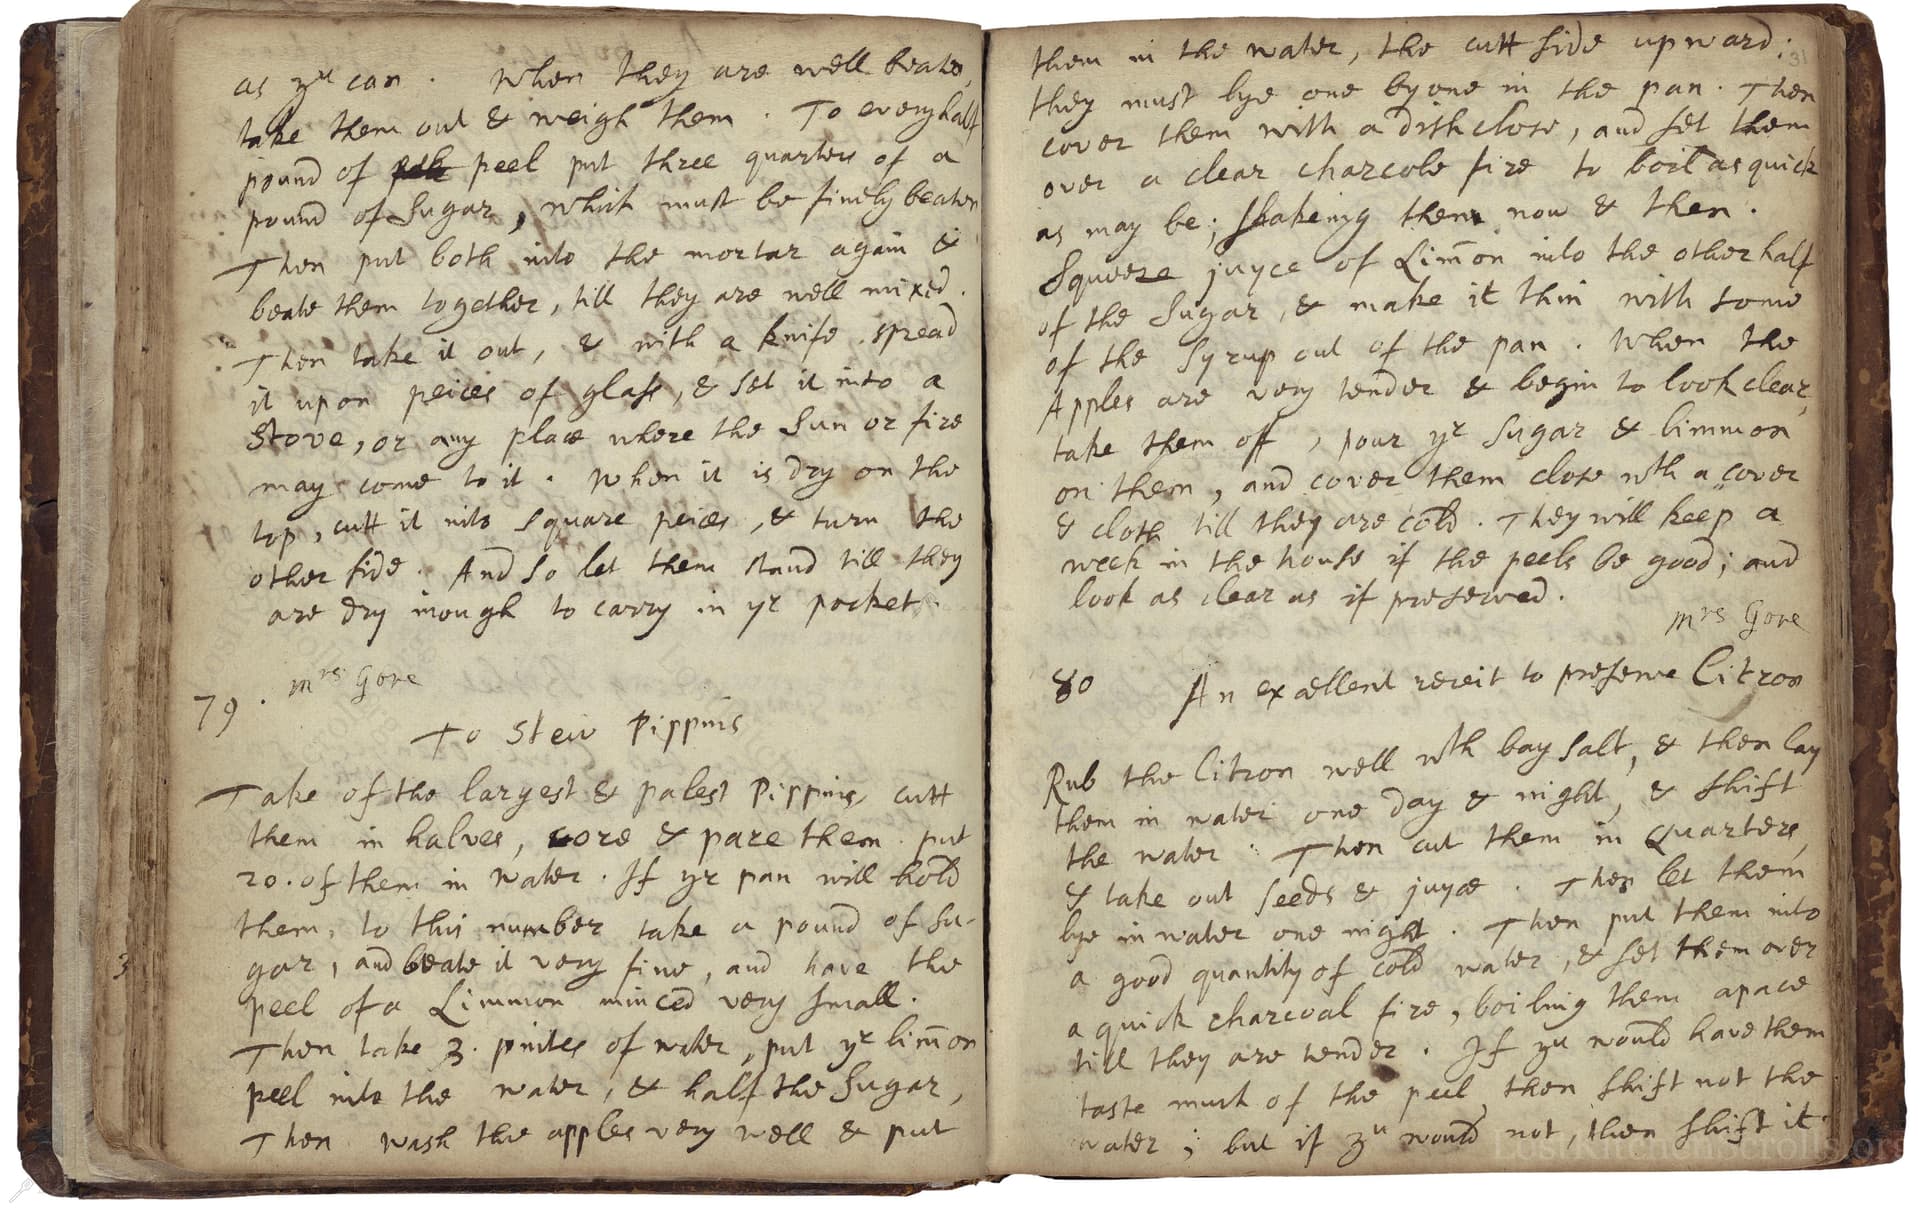 as yu can. When they are well beaten,
take them out & weigh them. To every half
pound of peel put three quarters of a
pound of Sugar, which must be finely beaten
Then put both into the mortar again &
beate them together, till they are well mixed.
Then take it out, & with a knife spread
it upon peices of glass, & set it into a
Stove, or any place where the Sun or fire
may come to it. When it is dry on the
top, cutt it into square peices, & turn the
other side. And so let them stand till they
are dry inough to carry in yr pocket.
79. Mrs Gore
To Stew Pippins
Take of the largest & palest Pippins, cutt
them in halves, core & pare them. put
20. of them in water. If yr pan will hold
them, to this number take a pound of Su-
gar, and beate it very fine, and have the
peel of a Limmon minced very small.
Then take 3. pintes of water, put yr lim̄on
peel into the water, & half the Sugar,
Then wash the apples very well & put
31
them in the water, the cutt side upward;
they must lye one by one in the pan. Then
cover them with a dish close, and set them
over a clear charcole fire to boil as quick
as may be; shakeing them now & then.
Squeeze juyce of Lim̄on into the other half
of the Sugar, & make it thin with some
of the Syrup out of the pan. When the
Apples are very tender & begin to look clear,
take them off, pour yr Sugar & limmon
on them, and cover them close wth a cover
& cloth till they are cold. They will keep a
week in the house if the peels be good; and
look as clear as if preserved.
Mrs Gore
80 An excellent receit to preserve Citron
Rub the Citron well wth bay salt, & then lay
them in water one day & night, & shift
the water. Then cut them in Quarters,
& take out seeds & juyce. Then let them
lye in water one night. Then put them into
a good quantity of cold water, & set them over
a quick charcoal fire, boiling them apace
till they are tender. If yu would have them
taste much of the peel, then shift not the
water; but if yu would not, then shift it.
LostKitchenScrolls.org